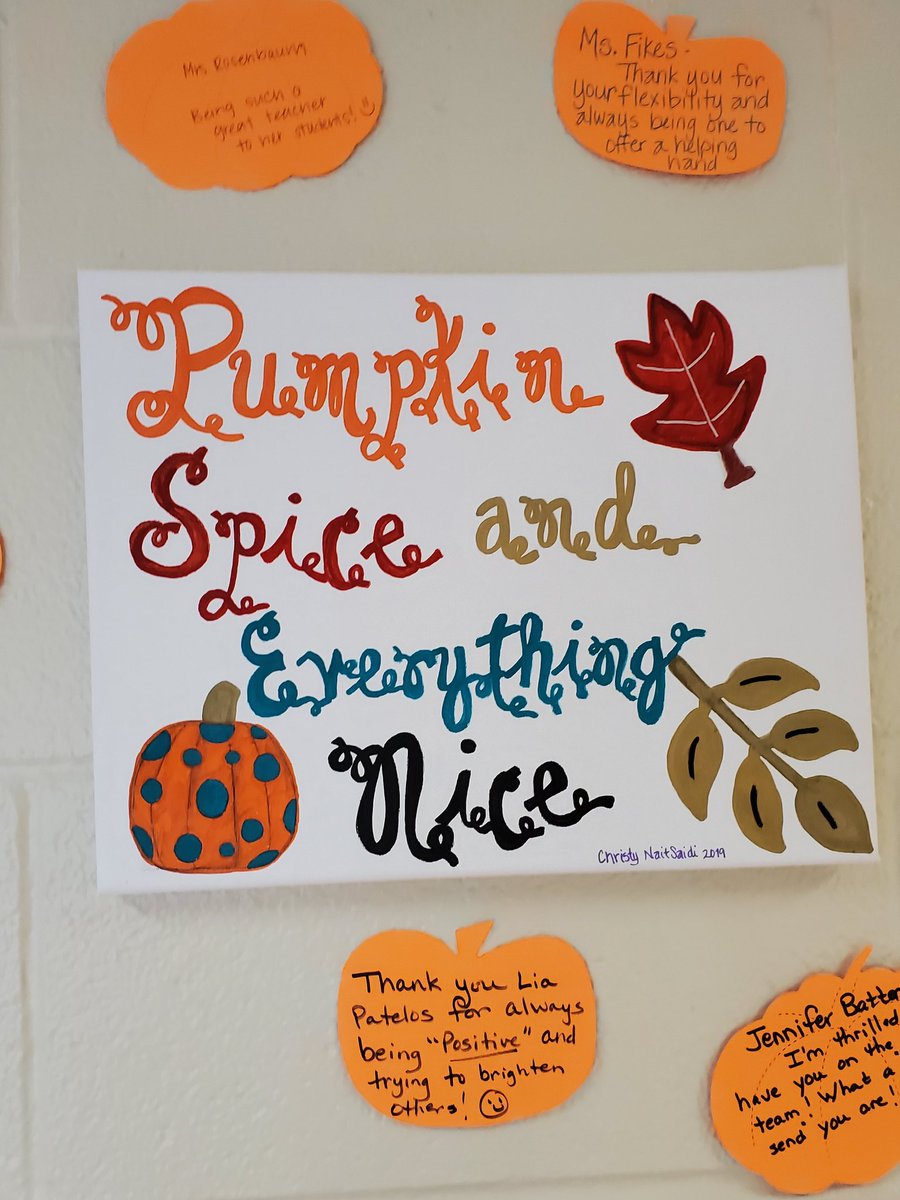 Mrs Rosenbaum
Being such a
great teacher
to her students!
Ms. Fikes -
Thank you for
your flexibility and
always being one to
offer a helping
hand
Pumpkin
Spice and
Everything
Nice
Christy NaitSaidi 2019
Thank you Lia
Patelos for always
being "Positive" and
trying to brighten
others!
Jennifer Batter
I'm thrilled
have you on the
team! What a
send you are!